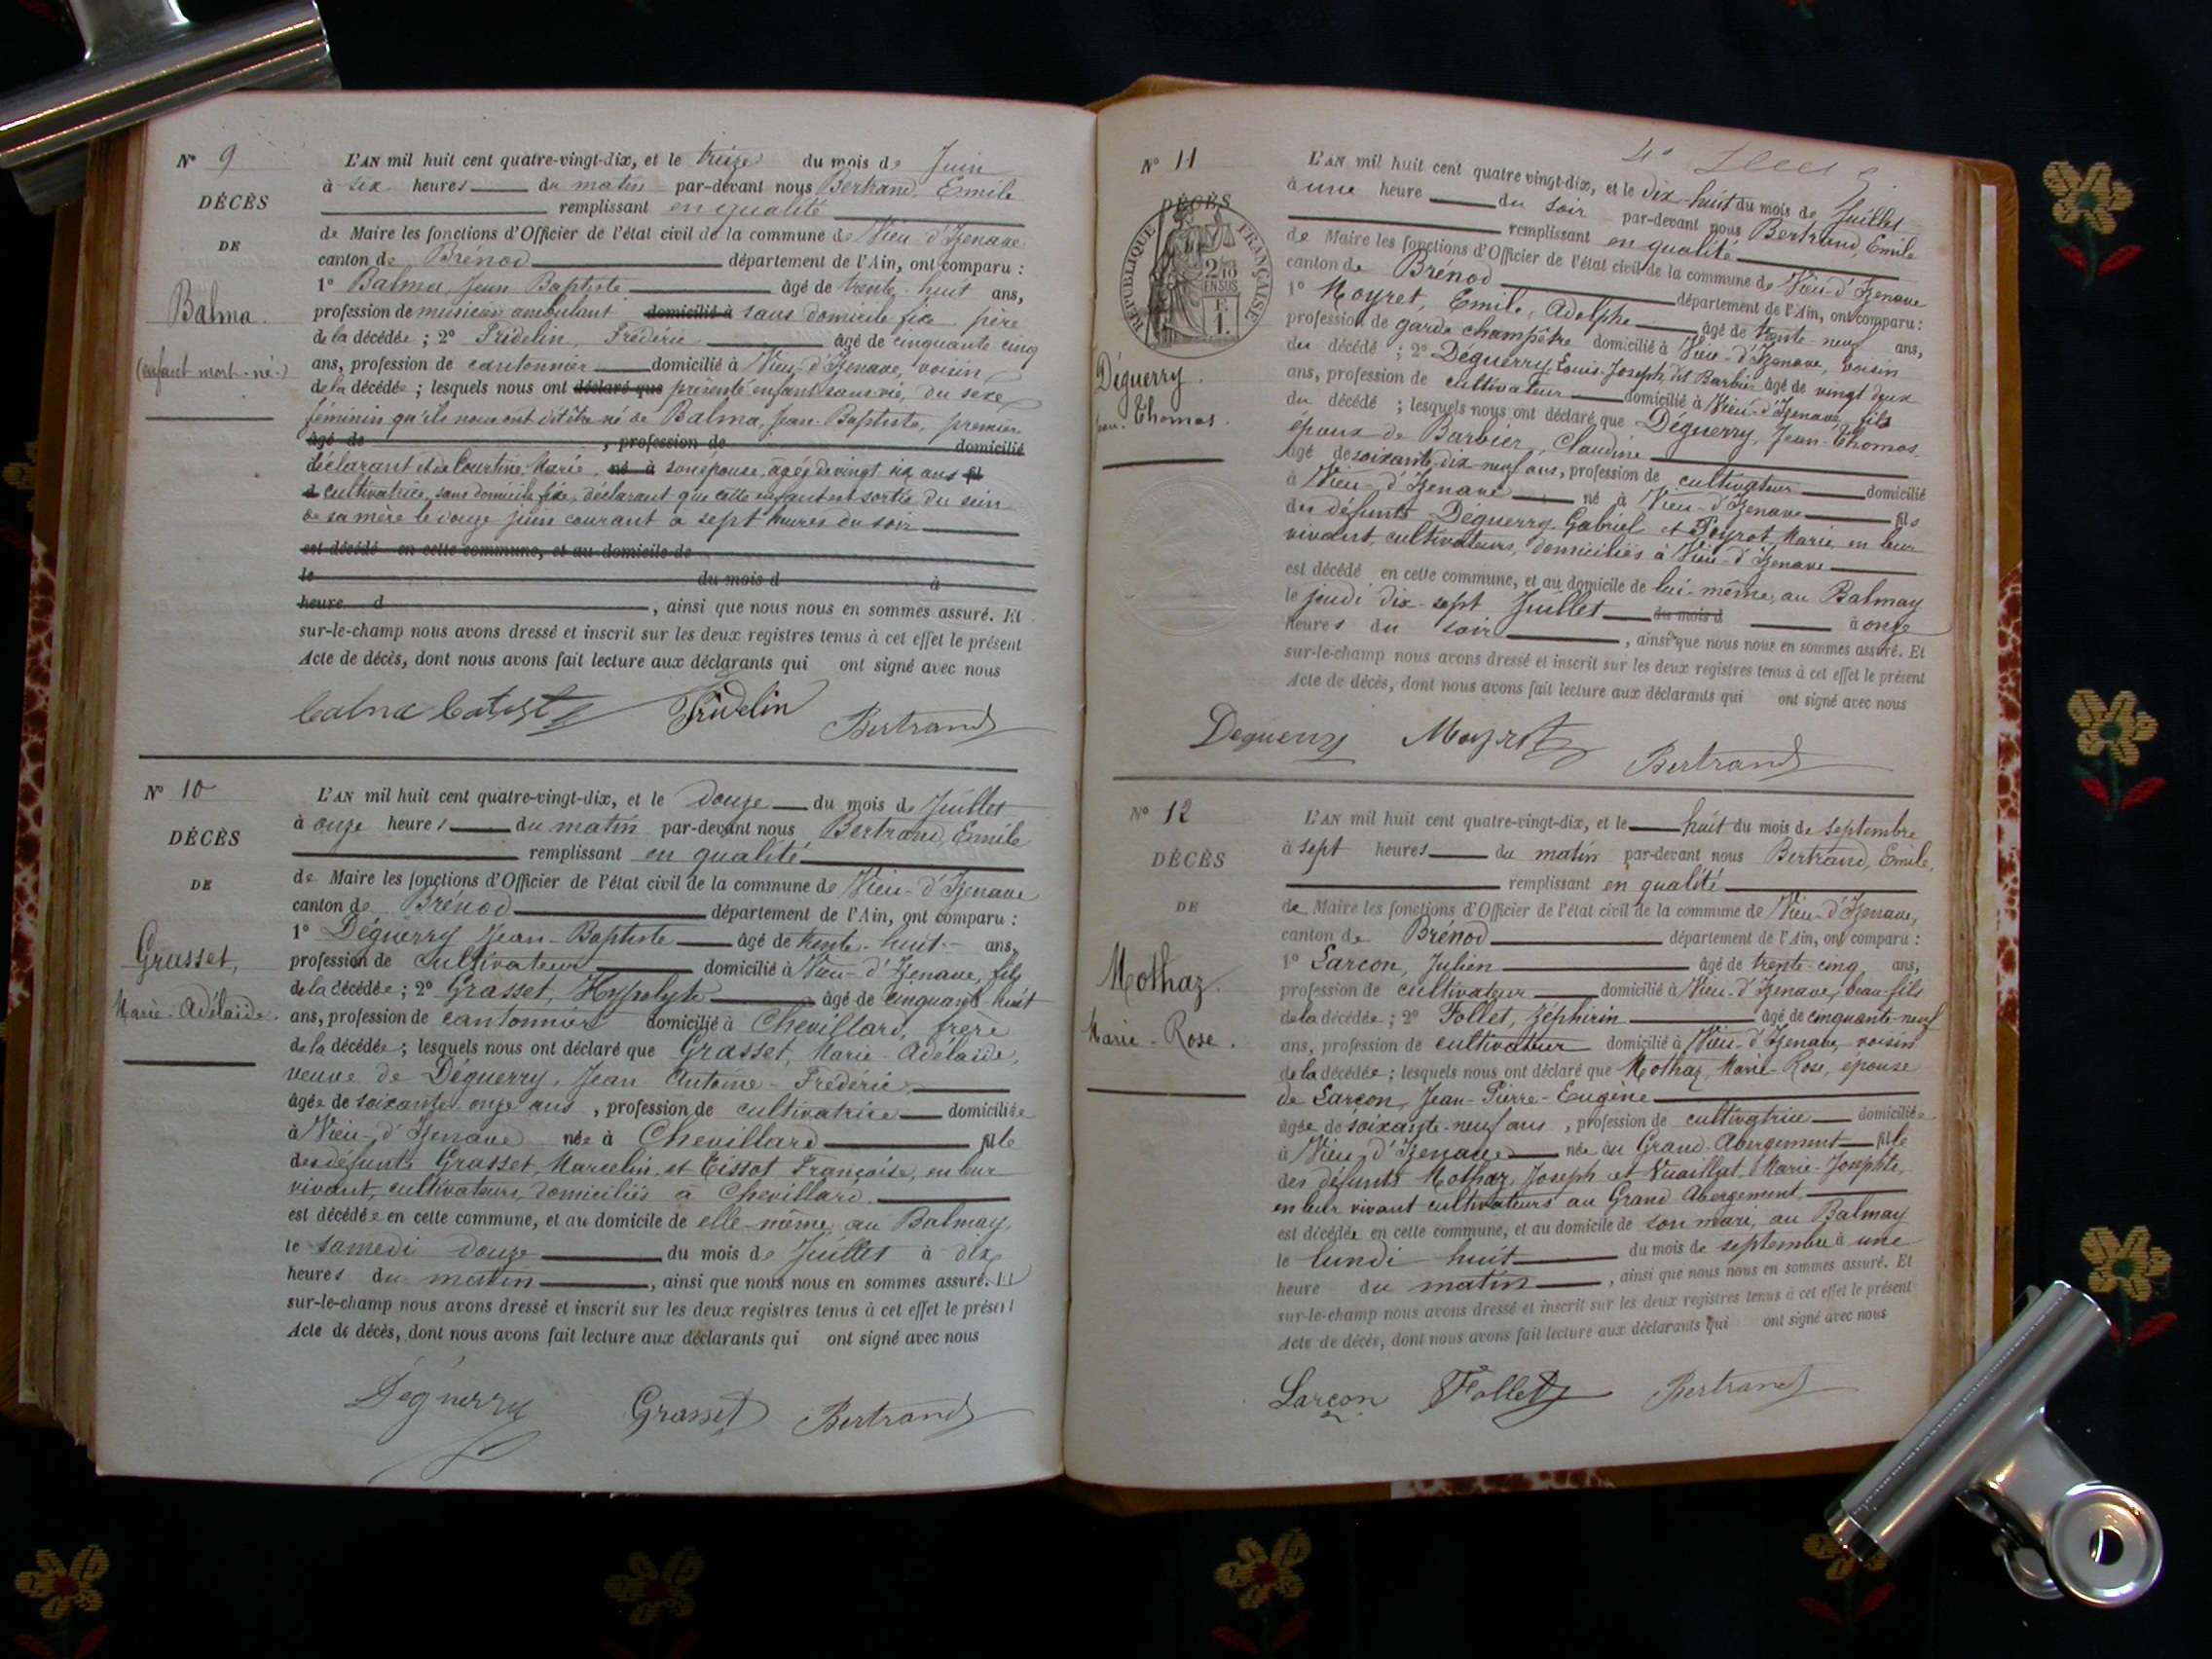 N° 9
DÉCÈS
DE
Balma.
(enfant mort-né.)
L'AN mil huit cent quatre-vingt-dix, et le treize du mois de Juin
à six heures du matin par-devant nous Bertrand, Emile
remplissant en qualité
de Maire les fonctions d'Officier de l'état civil de la commune de Vieu-d'Izenave
canton de Brénod département de l'Ain, ont comparu :
1° Balma, Jean Baptiste âgé de trente-huit ans,
profession de musicien ambulant domicilié à sans domicile fixe, père
de la décédée ; 2° Fridelin, Frédéric âgé de cinquante cinq
ans, profession de cantonnier domicilié à Vieu-d'Izenave, voisin
de la décédée ; lesquels nous ont déclaré que présenté enfant sans vie, du sexe
féminin qu'ils nous ont dit être né de Balma, Jean-Baptiste, premier
âgé de , profession de domicilié
déclarant et de Courtine, Marie, né à son épouse, âgée de vingt six ans fil
d cultivatrice, sans domicile fixe, déclarant que cette enfant est sortie du sein
de sa mère le douze juin courant à sept heures du soir
est décédé en cette commune, et au domicile de
le du mois d à
heure d , ainsi que nous nous en sommes assuré. Et
sur-le-champ nous avons dressé et inscrit sur les deux registres tenus à cet effet le présent
Acte de décès, dont nous avons fait lecture aux déclarants qui ont signé avec nous
Balma Batist Fridelin Bertrand
N° 10
DÉCÈS
DE
Grasset,
Marie-Adélaïde.
L'AN mil huit cent quatre-vingt-dix, et le douze du mois de Juillet
à onze heures du matin par-devant nous Bertrand, Emile
remplissant en qualité
de Maire les fonctions d'Officier de l'état civil de la commune de Vieu-d'Izenave
canton de Brénod département de l'Ain, ont comparu :
1° Déguerry Jean-Baptiste âgé de trente-huit ans,
profession de cultivateur domicilié à Vieu-d'Izenave, fils
de la décédée ; 2° Grasset, Hypolyte âgé de cinquante-huit
ans, profession de cantonnier domicilié à Chevillard, frère
de la décédée ; lesquels nous ont déclaré que Grasset, Marie-Adélaïde,
veuve de Déguerry, Jean-Antoine-Frédéric,
âgée de soixante onze ans , profession de cultivatrice domiciliée
à Vieu-d'Izenave née à Chevillard fille
des défunts Grasset, Marcelin et Tissot Françoise, en leur
vivant, cultivateurs, domiciliés à Chevillard.
est décédée en cette commune, et au domicile de elle-même, au Balmay,
le samedi douze du mois de Juillet à dix
heures du matin , ainsi que nous nous en sommes assuré. Et
sur-le-champ nous avons dressé et inscrit sur les deux registres tenus à cet effet le présent
Acte de décès, dont nous avons fait lecture aux déclarants qui ont signé avec nous
Déguerry Grasset Bertrand
N° 11
DÉCÈS
RÉPUBLIQUE FRANÇAISE
2/10 EN SUS
Déguerry.
Jean-Thomas.
L'AN mil huit cent quatre vingt-dix, et le dix-huit du mois de Juillet
à une heure du soir par-devant nous Bertrand, Emile
remplissant en qualité
de Maire les fonctions d'Officier de l'état civil de la commune de Vieu-d'Izenave
canton de Brénod département de l'Ain, ont comparu :
1° Moyret, Emile, Adolphe âgé de trente-neuf ans,
profession de garde champêtre domicilié à Vieu-d'Izenave, voisin
du décédé ; 2° Déguerry, Louis-Joseph, dit Barbier âgé de vingt deux
ans, profession de cultivateur domicilié à Vieu-d'Izenave, fils
du décédé ; lesquels nous ont déclaré que Déguerry, Jean-Thomas,
époux de Barbier, Claudine
âgé de soixante-dix-neuf ans, profession de cultivateur domicilié
à Vieu-d'Izenave né à Vieu-d'Izenave fils
des défunts Déguerry Gabriel et Poyrot, Marie, en leur
vivant, cultivateurs, domiciliés à Vieu-d'Izenave
est décédé en cette commune, et au domicile de lui-même, au Balmay
le jeudi dix-sept Juillet du mois d à onze
heures du soir , ainsi que nous nous en sommes assuré. Et
sur-le-champ nous avons dressé et inscrit sur les deux registres tenus à cet effet le présent
Acte de décès, dont nous avons fait lecture aux déclarants qui ont signé avec nous
Deguerry Moyret Bertrand
N° 12
DÉCÈS
DE
Mothaz.
Marie-Rose.
L'AN mil huit cent quatre-vingt-dix, et le huit du mois de septembre
à sept heures du matin par-devant nous Bertrand, Emile,
remplissant en qualité
de Maire les fonctions d'Officier de l'état civil de la commune de Vieu-d'Izenave,
canton de Brénod département de l'Ain, ont comparu :
1° Larçon, Julien âgé de trente-cinq ans,
profession de cultivateur domicilié à Vieu-d'Izenave, beau-fils
de la décédée ; 2° Follet, Zéphirin âgé de cinquante-neuf
ans, profession de cultivateur domicilié à Vieu-d'Izenave, voisin
de la décédée ; lesquels nous ont déclaré que Mothaz, Marie-Rose, épouse
de Larçon, Jean-Pierre-Eugène
âgée de soixante-neuf ans , profession de cultivatrice domiciliée
à Vieu-d'Izenave née au Grand-Abergement fille
des défunts Mothaz, Joseph et Vuaillat, Marie-Josephte,
en leur vivant cultivateurs au Grand-Abergement,
est décédée en cette commune, et au domicile de son mari, au Balmay
le lundi huit du mois de septembre à une
heure du matin , ainsi que nous nous en sommes assuré. Et
sur-le-champ nous avons dressé et inscrit sur les deux registres tenus à cet effet le présent
Acte de décès, dont nous avons fait lecture aux déclarants qui ont signé avec nous
Larçon Follet Bertrand